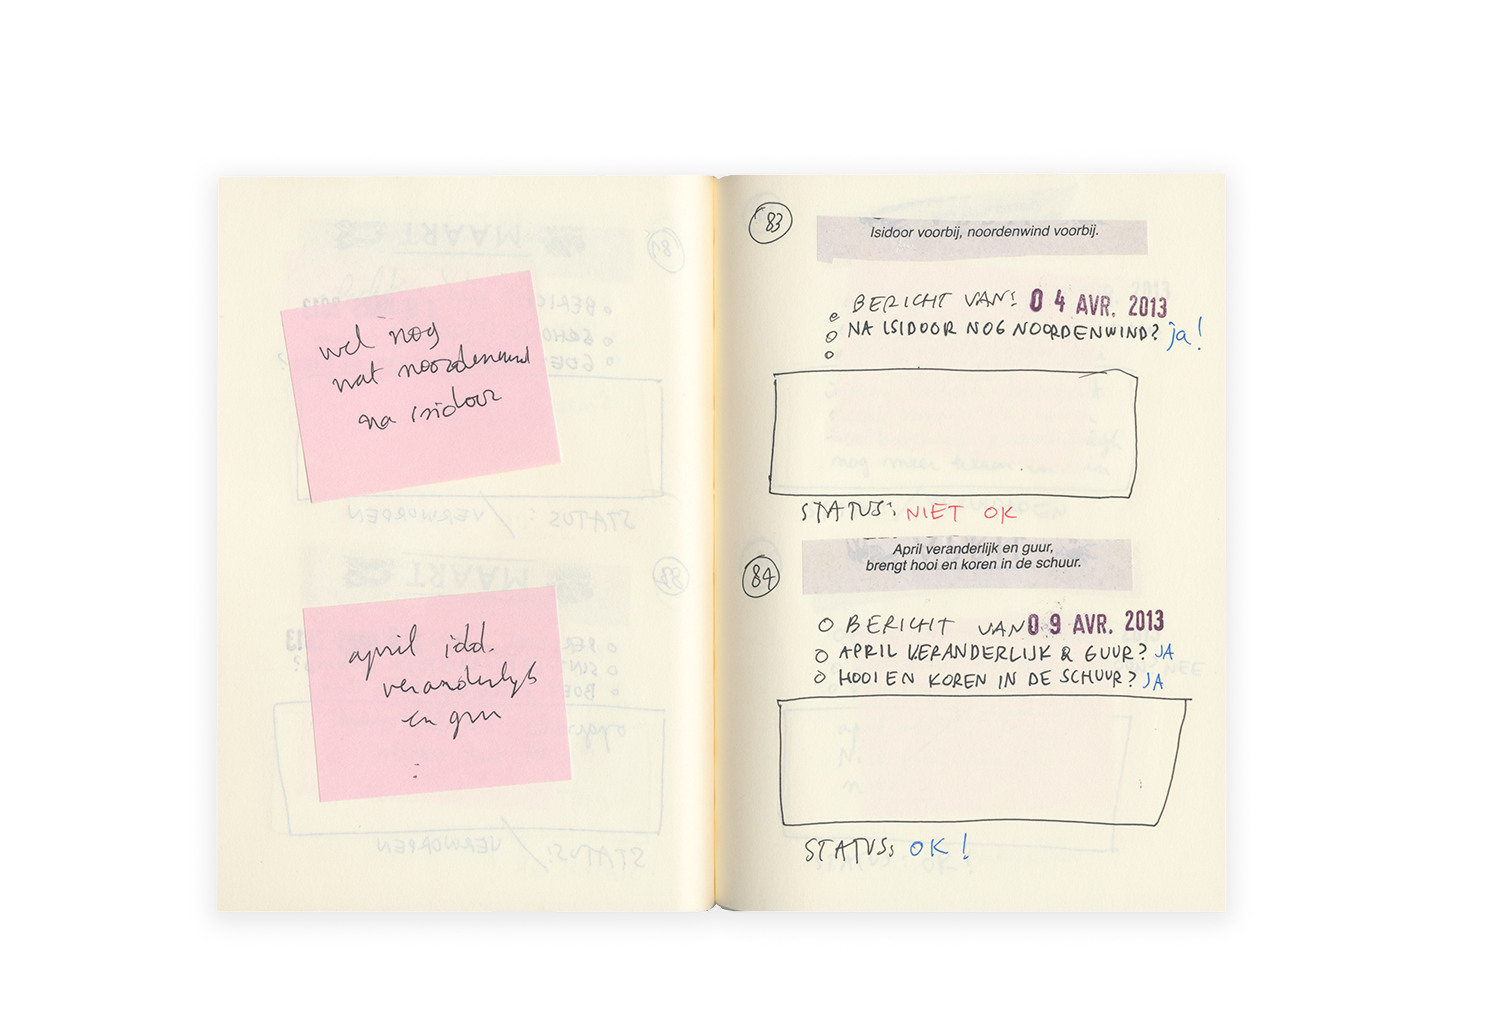 wel nog
wat noordenwind
na isidoor
april idd.
veranderlijk
en guur
:
83
Isidoor voorbij, noordenwind voorbij.
BERICHT VAN: 04 AVR. 2013
NA ISIDOOR NOG NOORDENWIND? ja!
STATUS: NIET OK
84
April veranderlijk en guur,
brengt hooi en koren in de schuur.
BERICHT VAN 09 AVR. 2013
APRIL VERANDERLIJK & GUUR? JA
HOOI EN KOREN IN DE SCHUUR? JA
STATUS: OK!